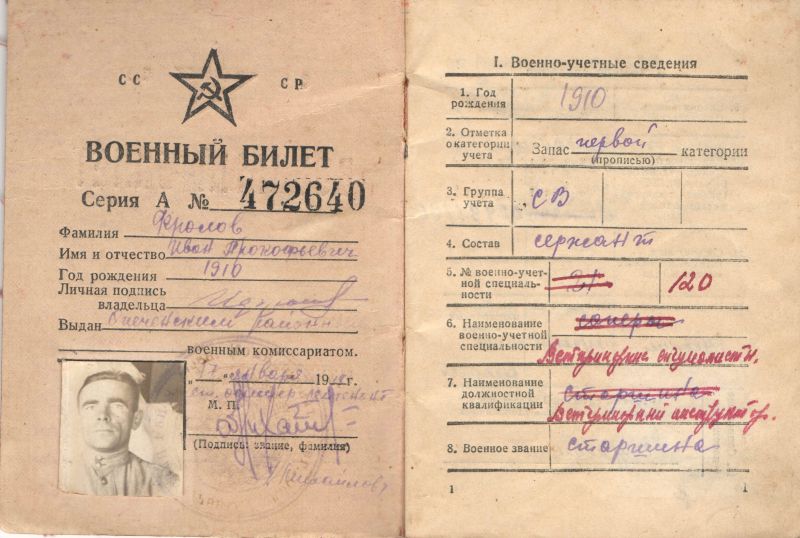 СС СР
ВОЕННЫЙ БИЛЕТ
Серия А № 472640
Фамилия Фролов
Имя и отчество Иван Прокофьевич
Год рождения 1910
Личная подпись
владельца
Выдан районн
военным комиссариатом.
января 19 г.
М. П.
(Подпись: звание, фамилия)
I. Военно-учетные сведения
1. Год
рождения 1910
2. Отметка
о категории
учета Запас первой категории
(прописью)
3. Группа
учета СВ
4. Состав сержант
5. № военно-учет-
ной специаль-
ности 31 120
6. Наименование
военно-учетной
специальности саперы
Ветеринарные специалисты.
7. Наименование
должностной
квалификации старшина
Ветеринарный инструктор.
8. Военное звание старшина
1 1